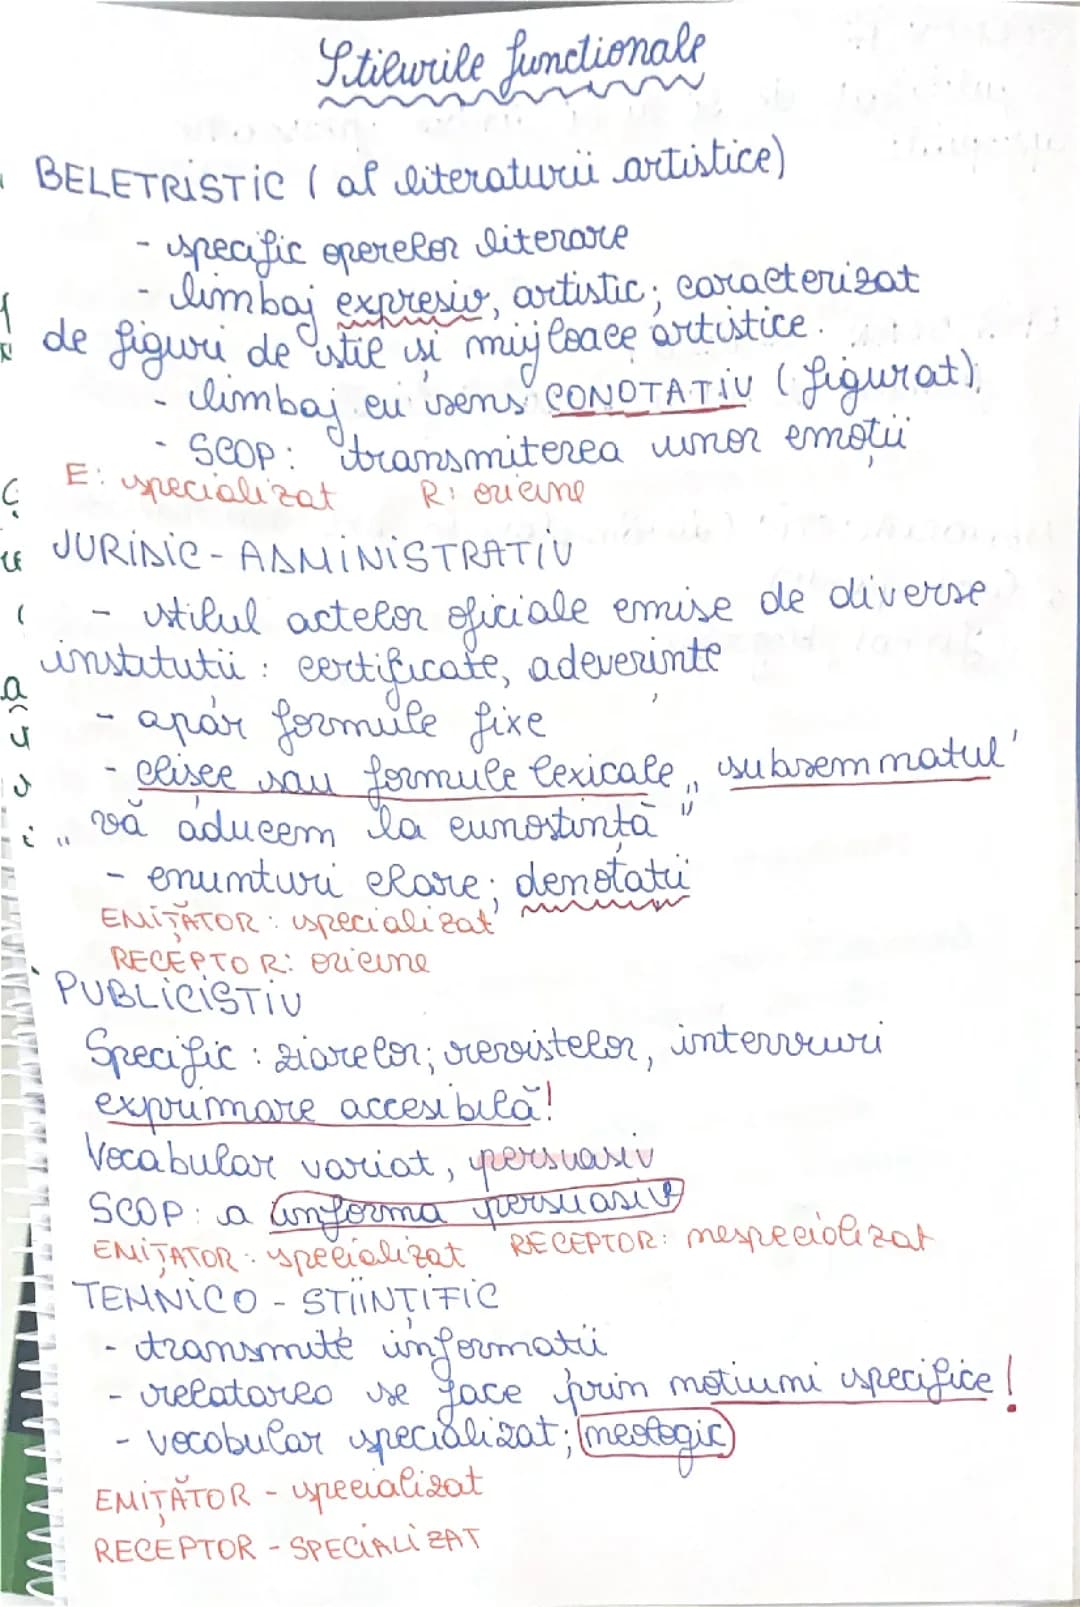 Stilurile functionale
BELETRISTIC ( al literaturii artistice)
- specific operelor literare
- limbaj expresiv, artistic; caracterizat
de figuri de stil și mijloace artistice.
- limbaj cu sens CONOTATIV (figurat);
- SCOP: transmiterea unor emoții
E: specializat R: oricine
JURIDIC - ADMINISTRATIV
- stilul actelor oficiale emise de diverse
institutii : certificate, adeverințe
- apar formule fixe
- clisee sau formule lexicale „subsemnatul'
„vă aducem la cunostință"
- enunturi clare; denotatii
EMIȚĂTOR : specializat
RECEPTOR: oricine
PUBLICISTIV
Specific : ziarelor; revistelor, interviuri
exprimare accesibilă!
Vocabular variat, persuasiv
SCOP: a informa persuasiv
EMIȚĂTOR: specializat RECEPTOR: nespecializat
TEHNICO - STIINȚIFIC
- transmite informatii
- relatarea se face prin notiuni specifice!
- vocobular specializat; neologic
EMIȚĂTOR - specializat
RECEPTOR - SPECIALIZAT